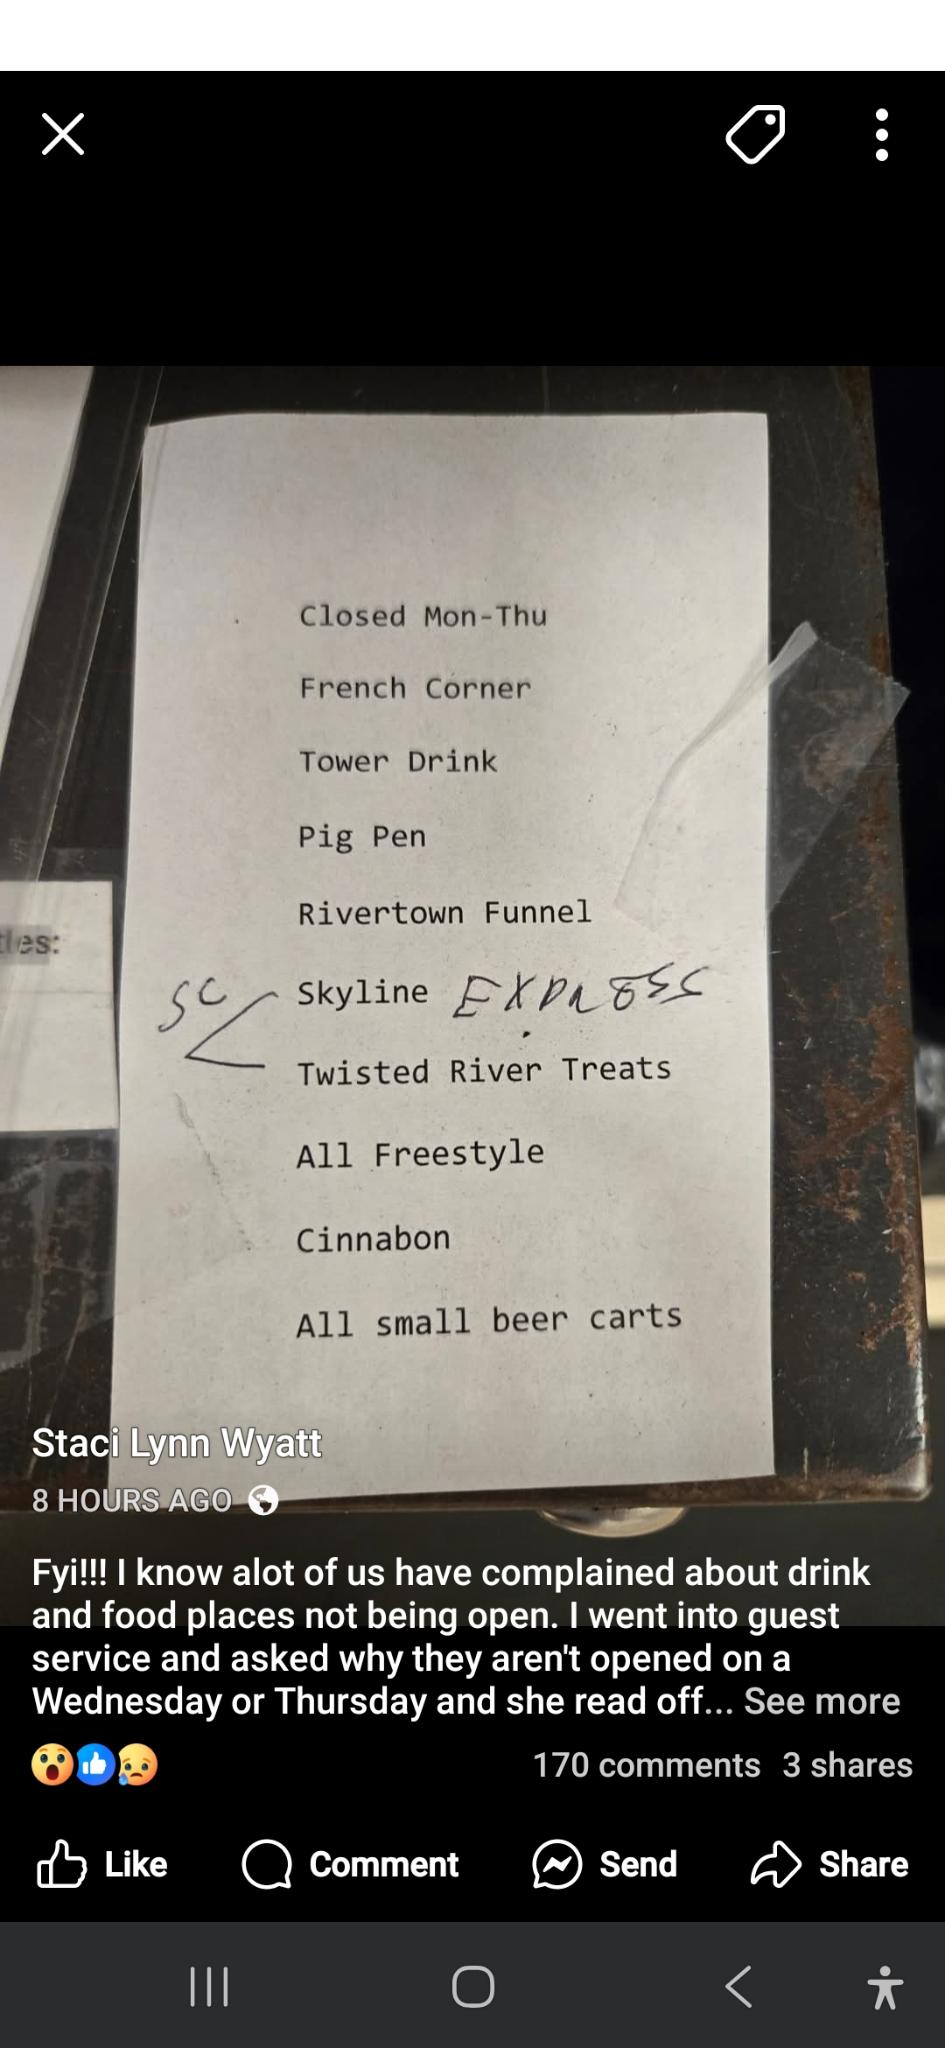 Closed Mon-Thu
French Corner
Tower Drink
Pig Pen
Rivertown Funnel
tles:
SC
Skyline EXPRESS
Twisted River Treats
All Freestyle
Cinnabon
All small beer carts
Staci Lynn Wyatt
8 HOURS AGO
Fyi!!! I know alot of us have complained about drink
and food places not being open. I went into guest
service and asked why they aren't opened on a
Wednesday or Thursday and she read off... See more
170 comments 3 shares
Like Comment Send Share